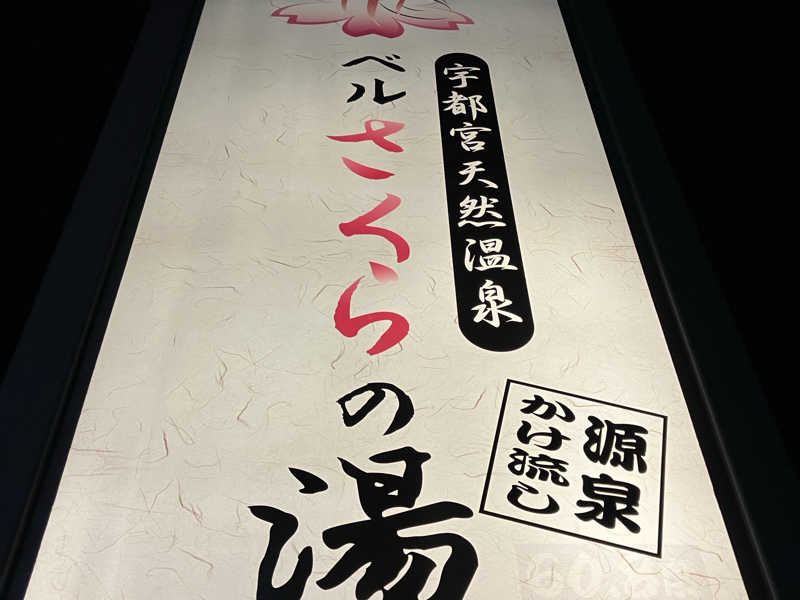 宇都宮天然温泉
ベルさくらの湯
源泉
かけ流し